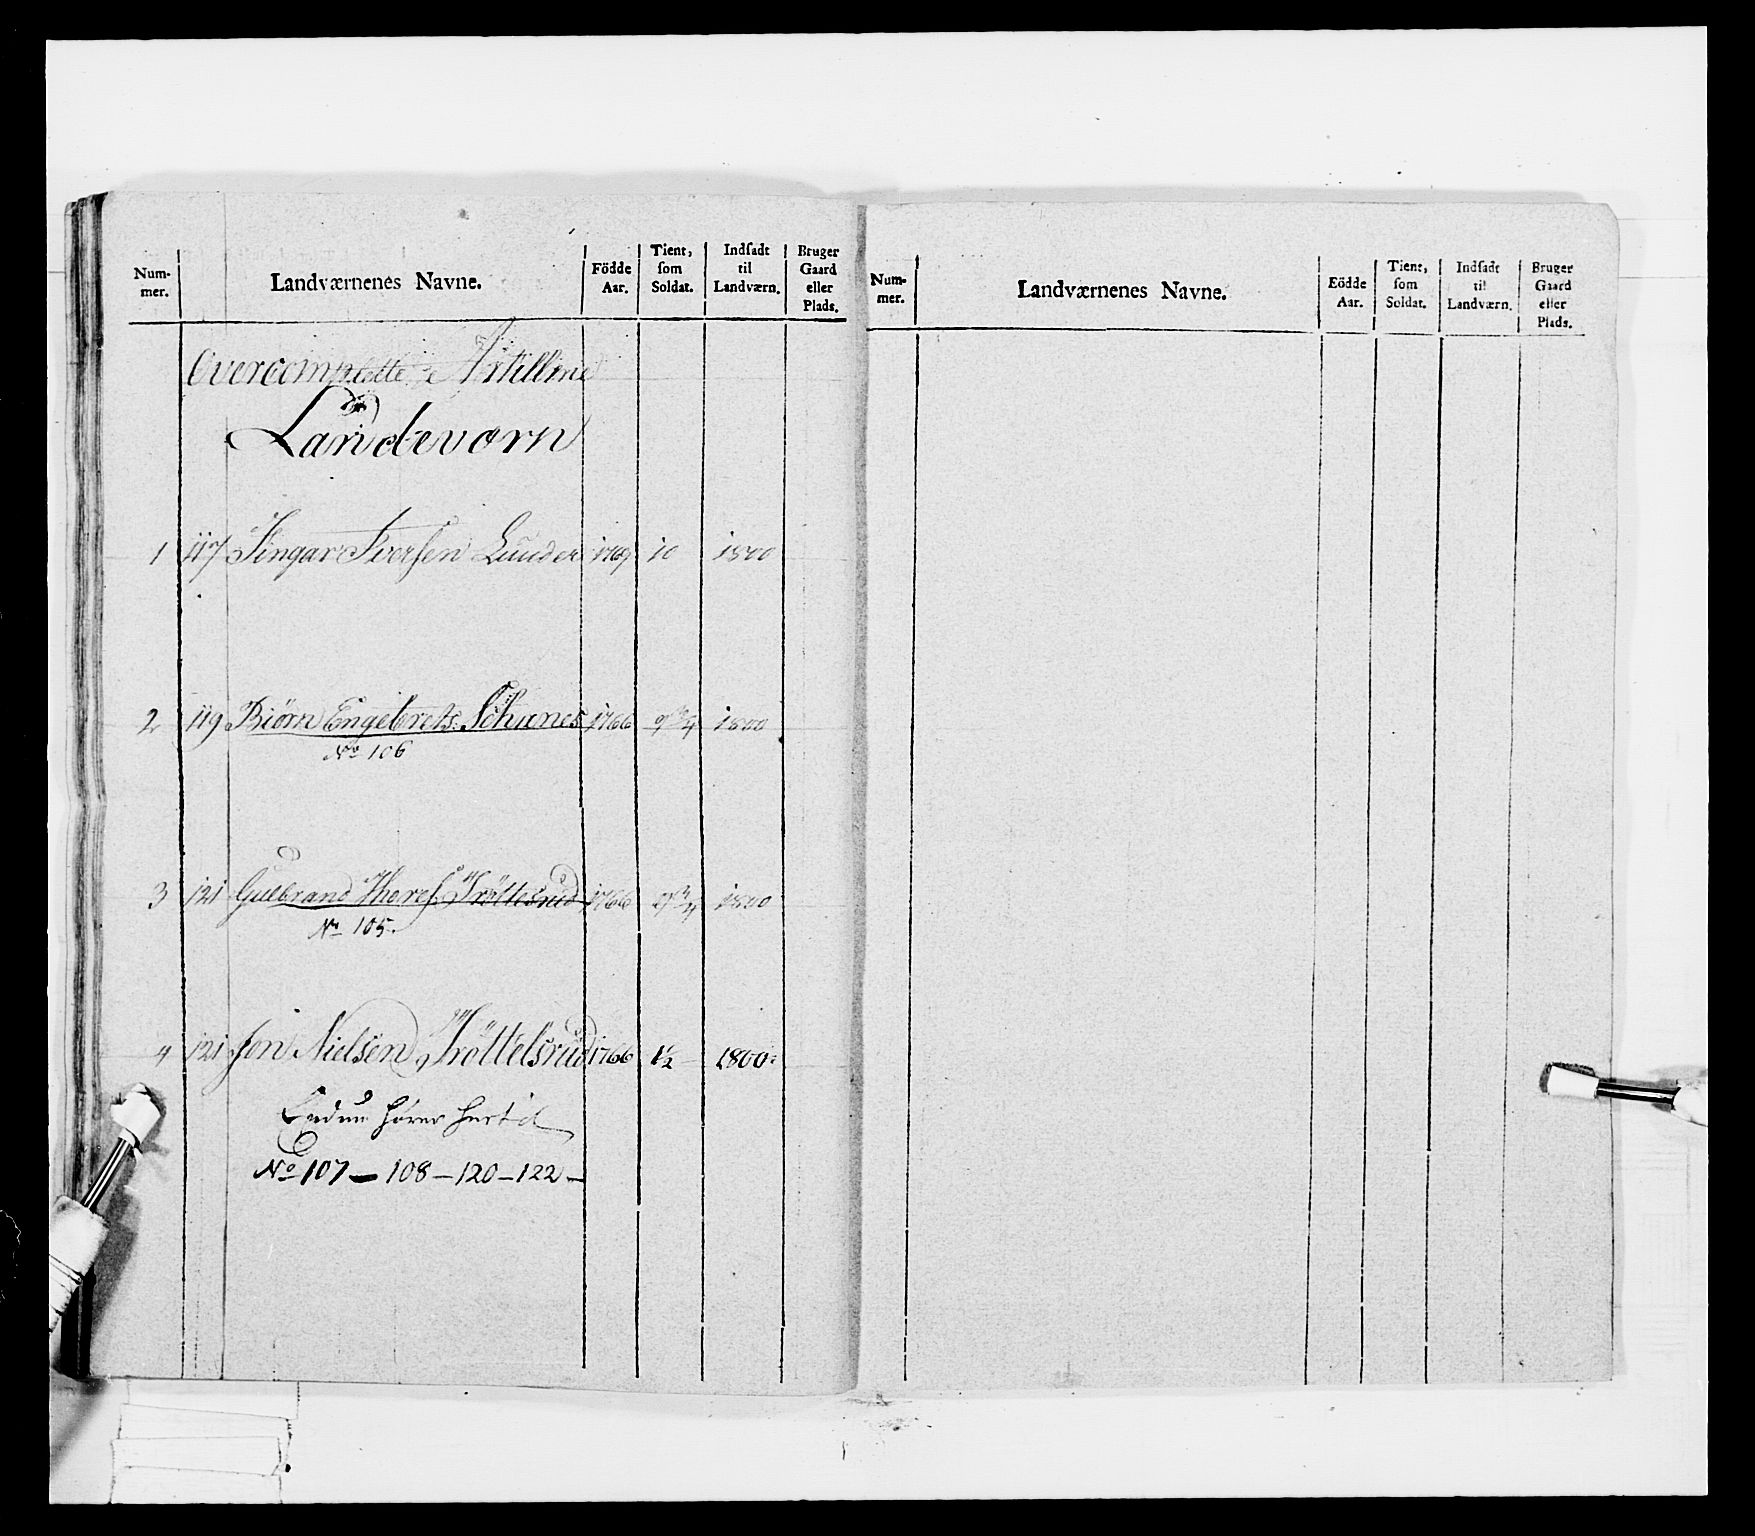 Num-
mer.
Landværnenes Navne.
Födde
Aar.
Tient,
som
Soldat.
Indsadt
til
Landværn.
Bruger
Gaard
eller
Plads.
Overcomplette Artillerie
Landevern
1 117 Iversen Lunder 1769 10 1800
2 119 Biörn Engebrets. 1766 9 3/4 1800
No 106
3 121 Gulbrand Thores. Tröttesrud 1766 9 3/4 1800
No 105.
4 121 Jon Nielsen Tröttelsrud 1766 1½ 1800
Endnu hörer hertil
No 107 - 108 - 120 - 122 -
Num-
mer.
Landværnenes Navne.
Eödde
Aar.
Tient,
som
Soldat.
Indsadt
til
Landværn.
Bruger
Gaard
eller
Plads.